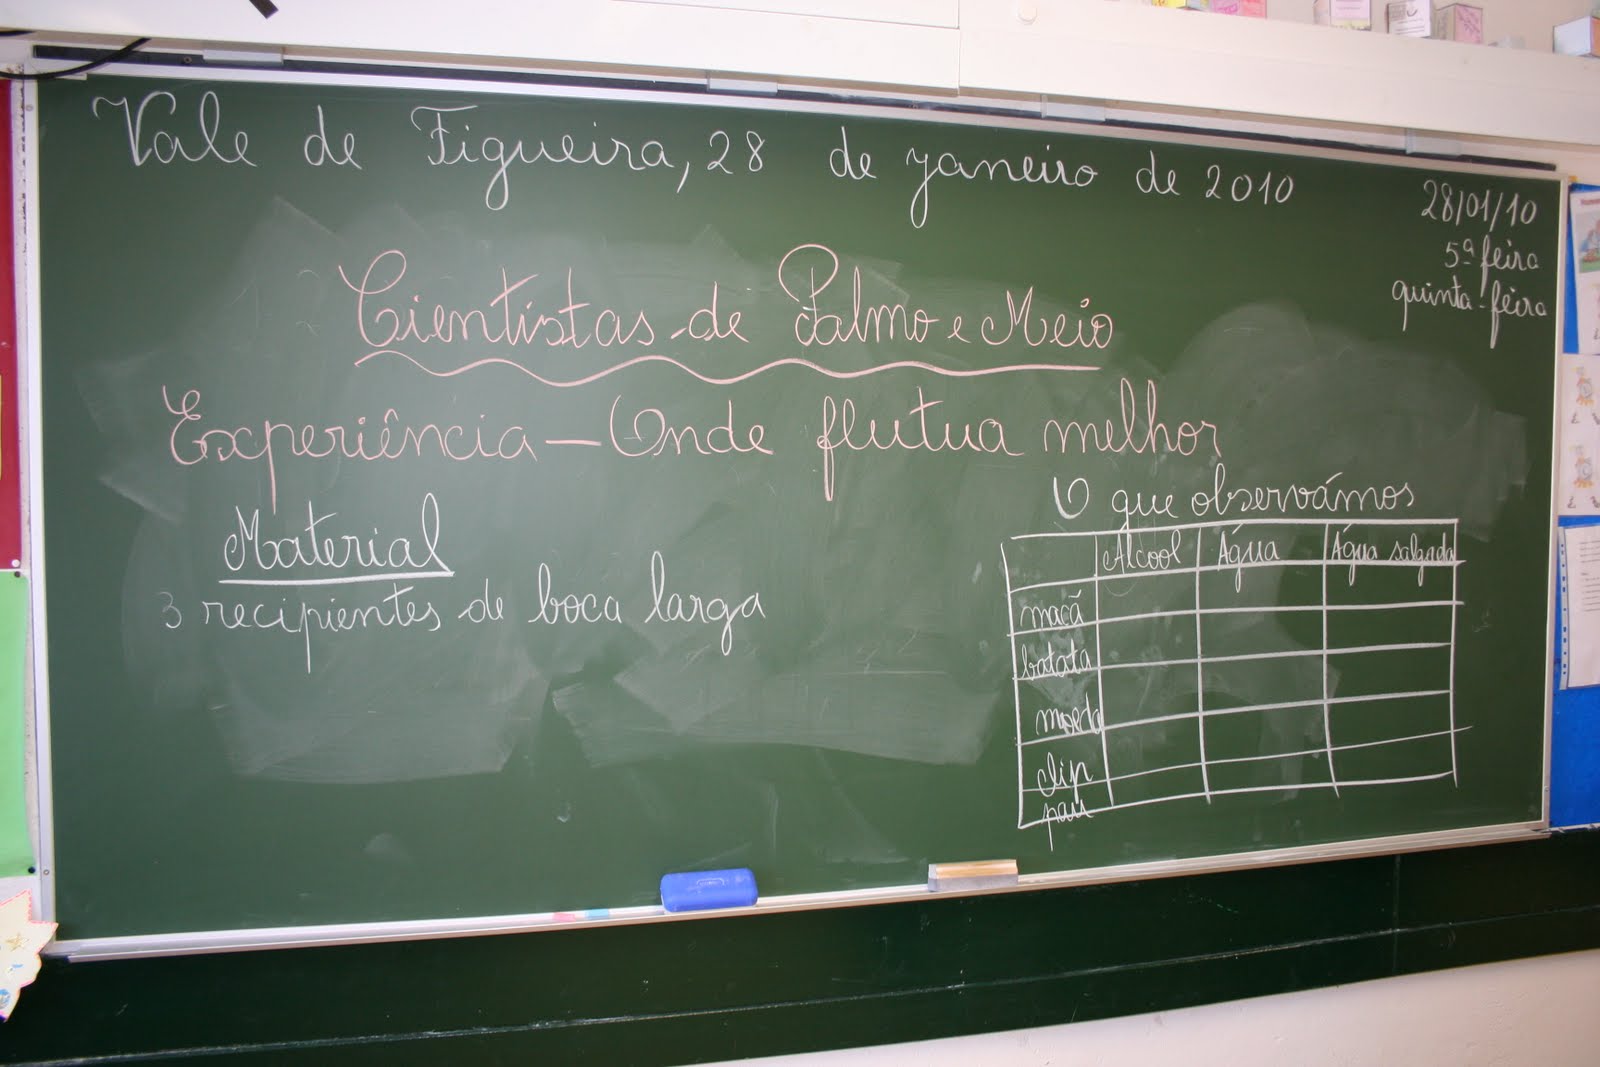 Vale de Figueira, 28 de janeiro de 2010
28/01/10
5ª feira
quinta-feira
Cientistas de Palmo e Meio
Experiência - Onde flutua melhor
Material
3 recipientes de boca larga
O que observámos
Álcool Água Água salgada
maçã
batata
moeda
clip
pau